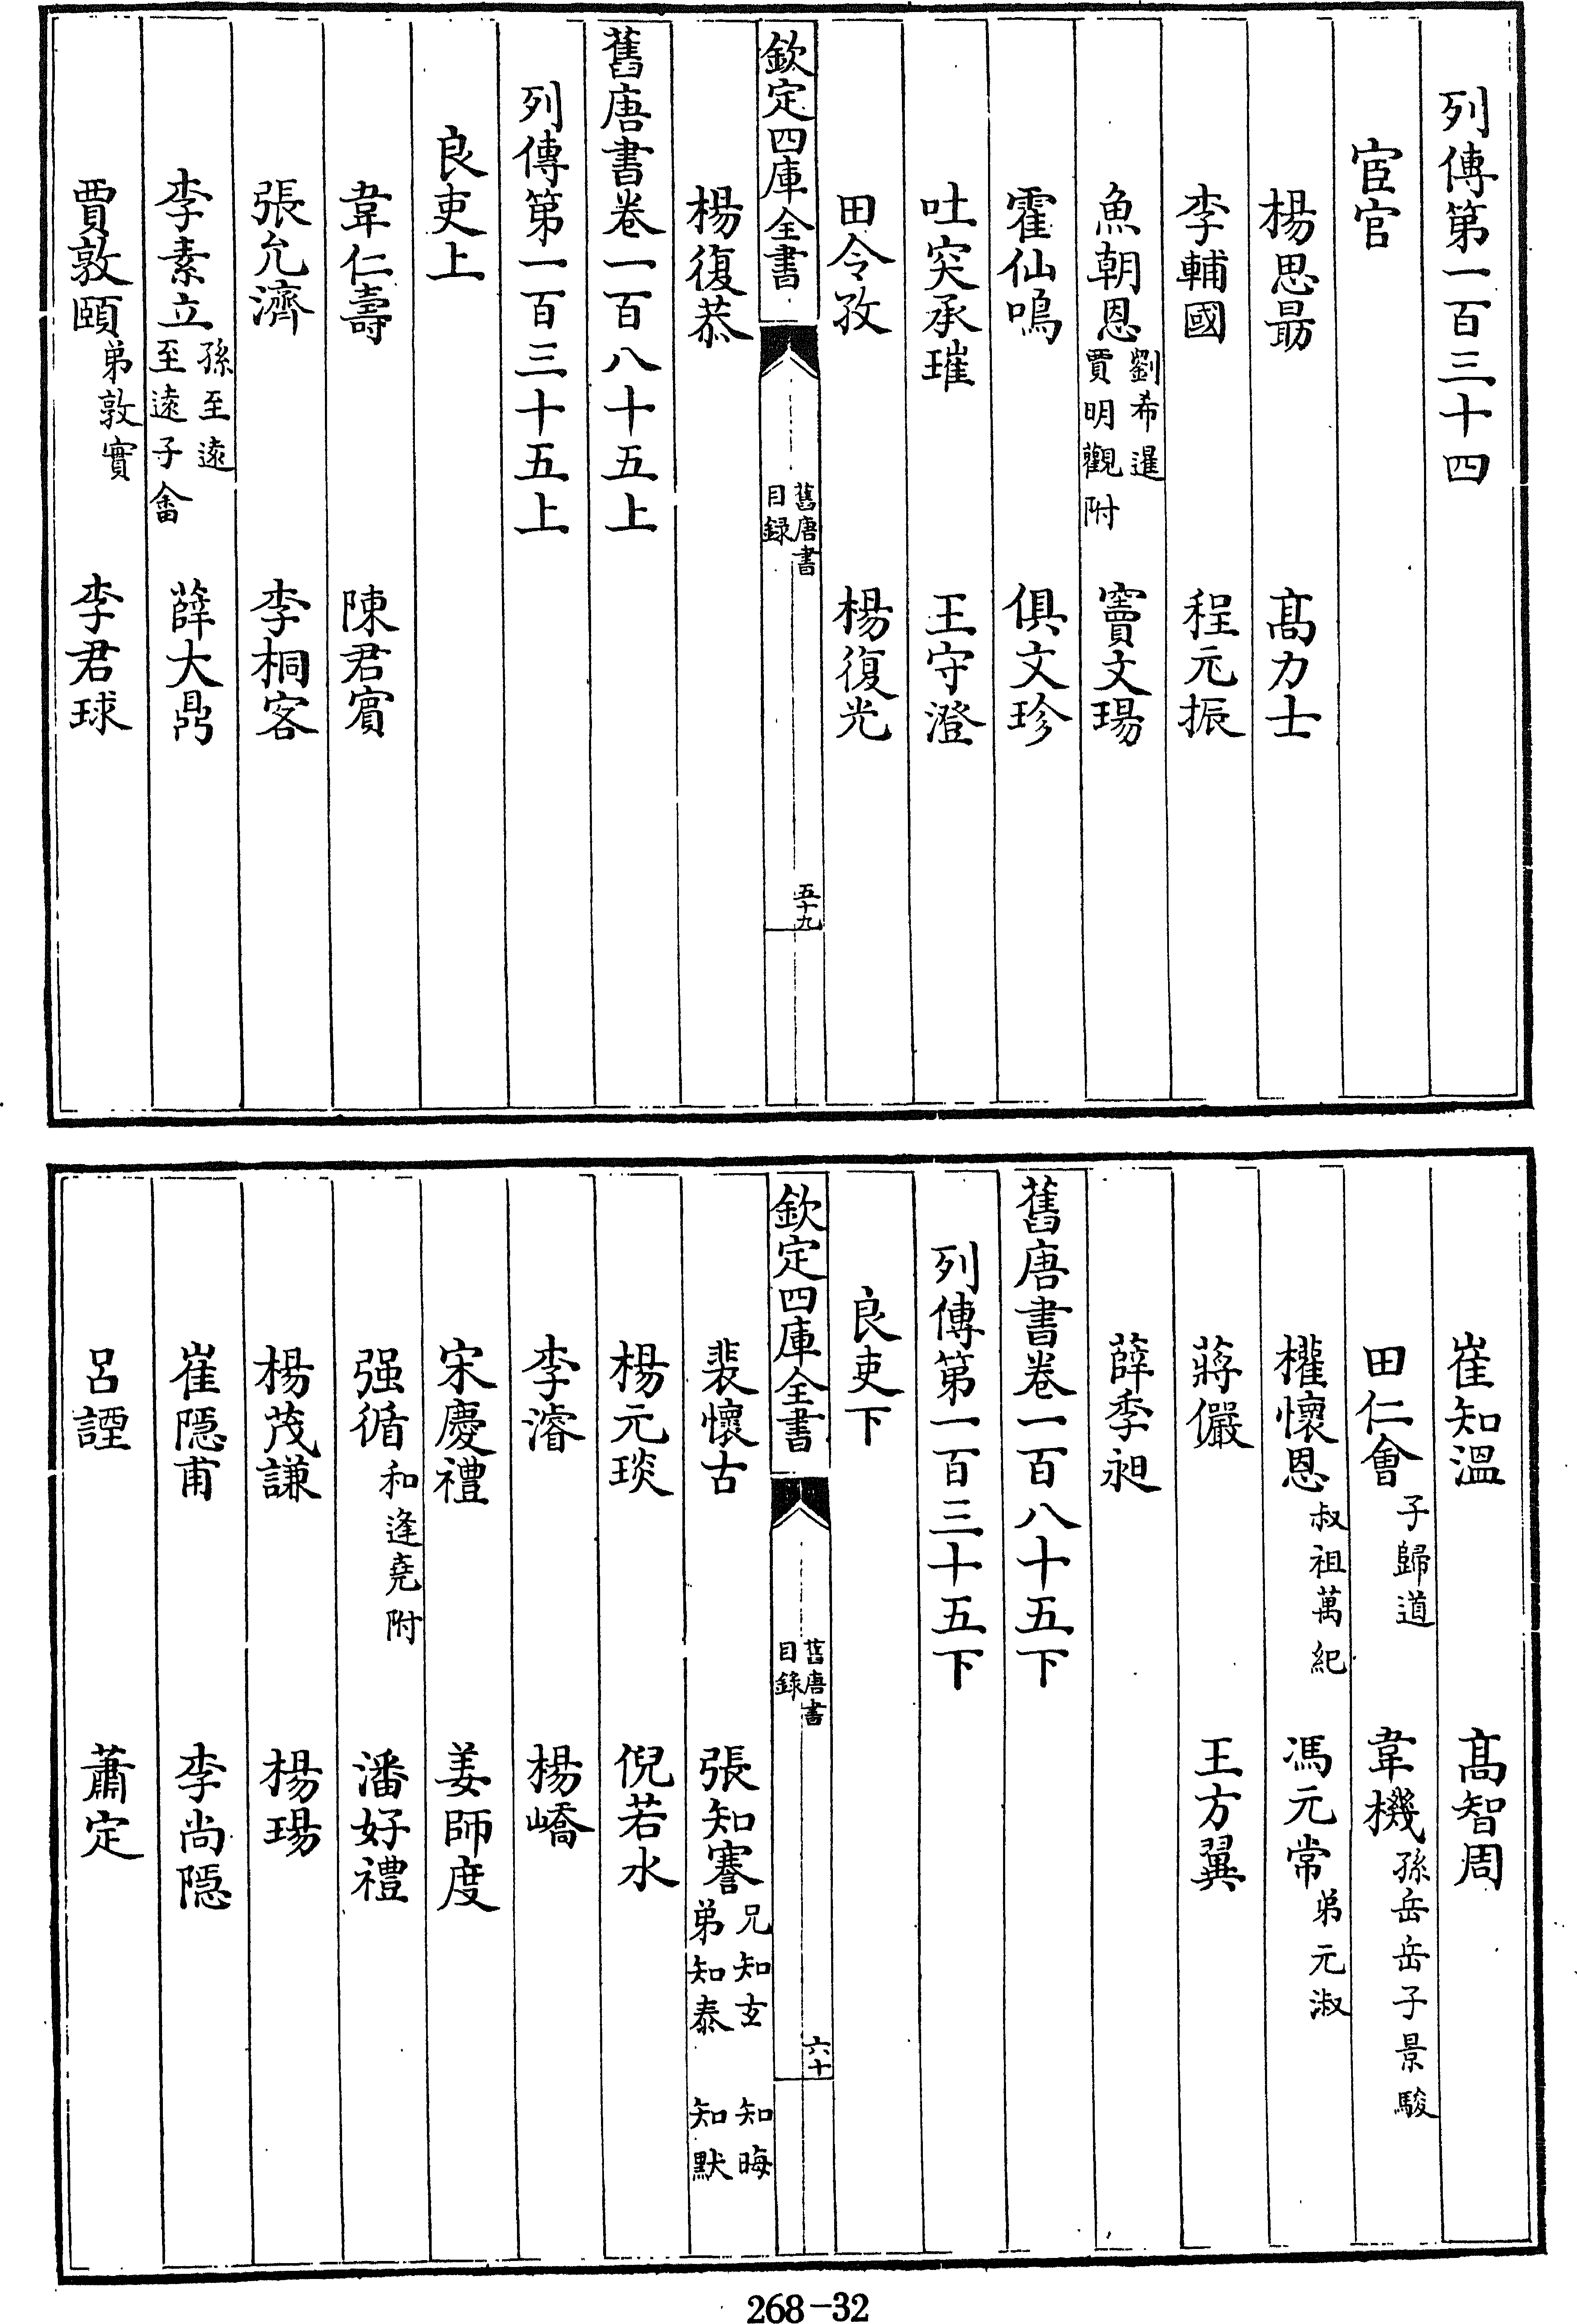 列傳第一百三十四
宦官
楊思勗 髙力士
李輔國 程元振
魚朝恩 劉希暹 賈明觀附 竇文瑒
霍仙鳴 俱文珍
吐突承璀 王守澄
田令孜 楊復光
欽定四庫全書 舊唐書目録 五十九
楊復恭
舊唐書卷一百八十五上
列傳第一百三十五上
良吏上
韋仁壽 陳君賓
張允濟 李桐客
李素立 孫至逺 至逺子畬 薛大鼎
賈敦頤 弟敦實 李君球
崔知溫 髙智周
田仁會 子歸道 韋機 孫岳岳子景駿
權懷恩 叔祖萬紀 馮元常 弟元淑
蔣儼 王方翼
薛季昶
舊唐書卷一百八十五下
列傳第一百三十五下
良吏下
欽定四庫全書 舊唐書目錄 六十
裴懷古 張知謇 兄知玄 知晦 弟知泰 知默
楊元琰 倪若水
李濬 楊嶠
宋慶禮 姜師度
强循 和逢堯附 潘好禮
楊茂謙 楊瑒
崔隱甫 李尚隱
呂諲 蕭定
268-32